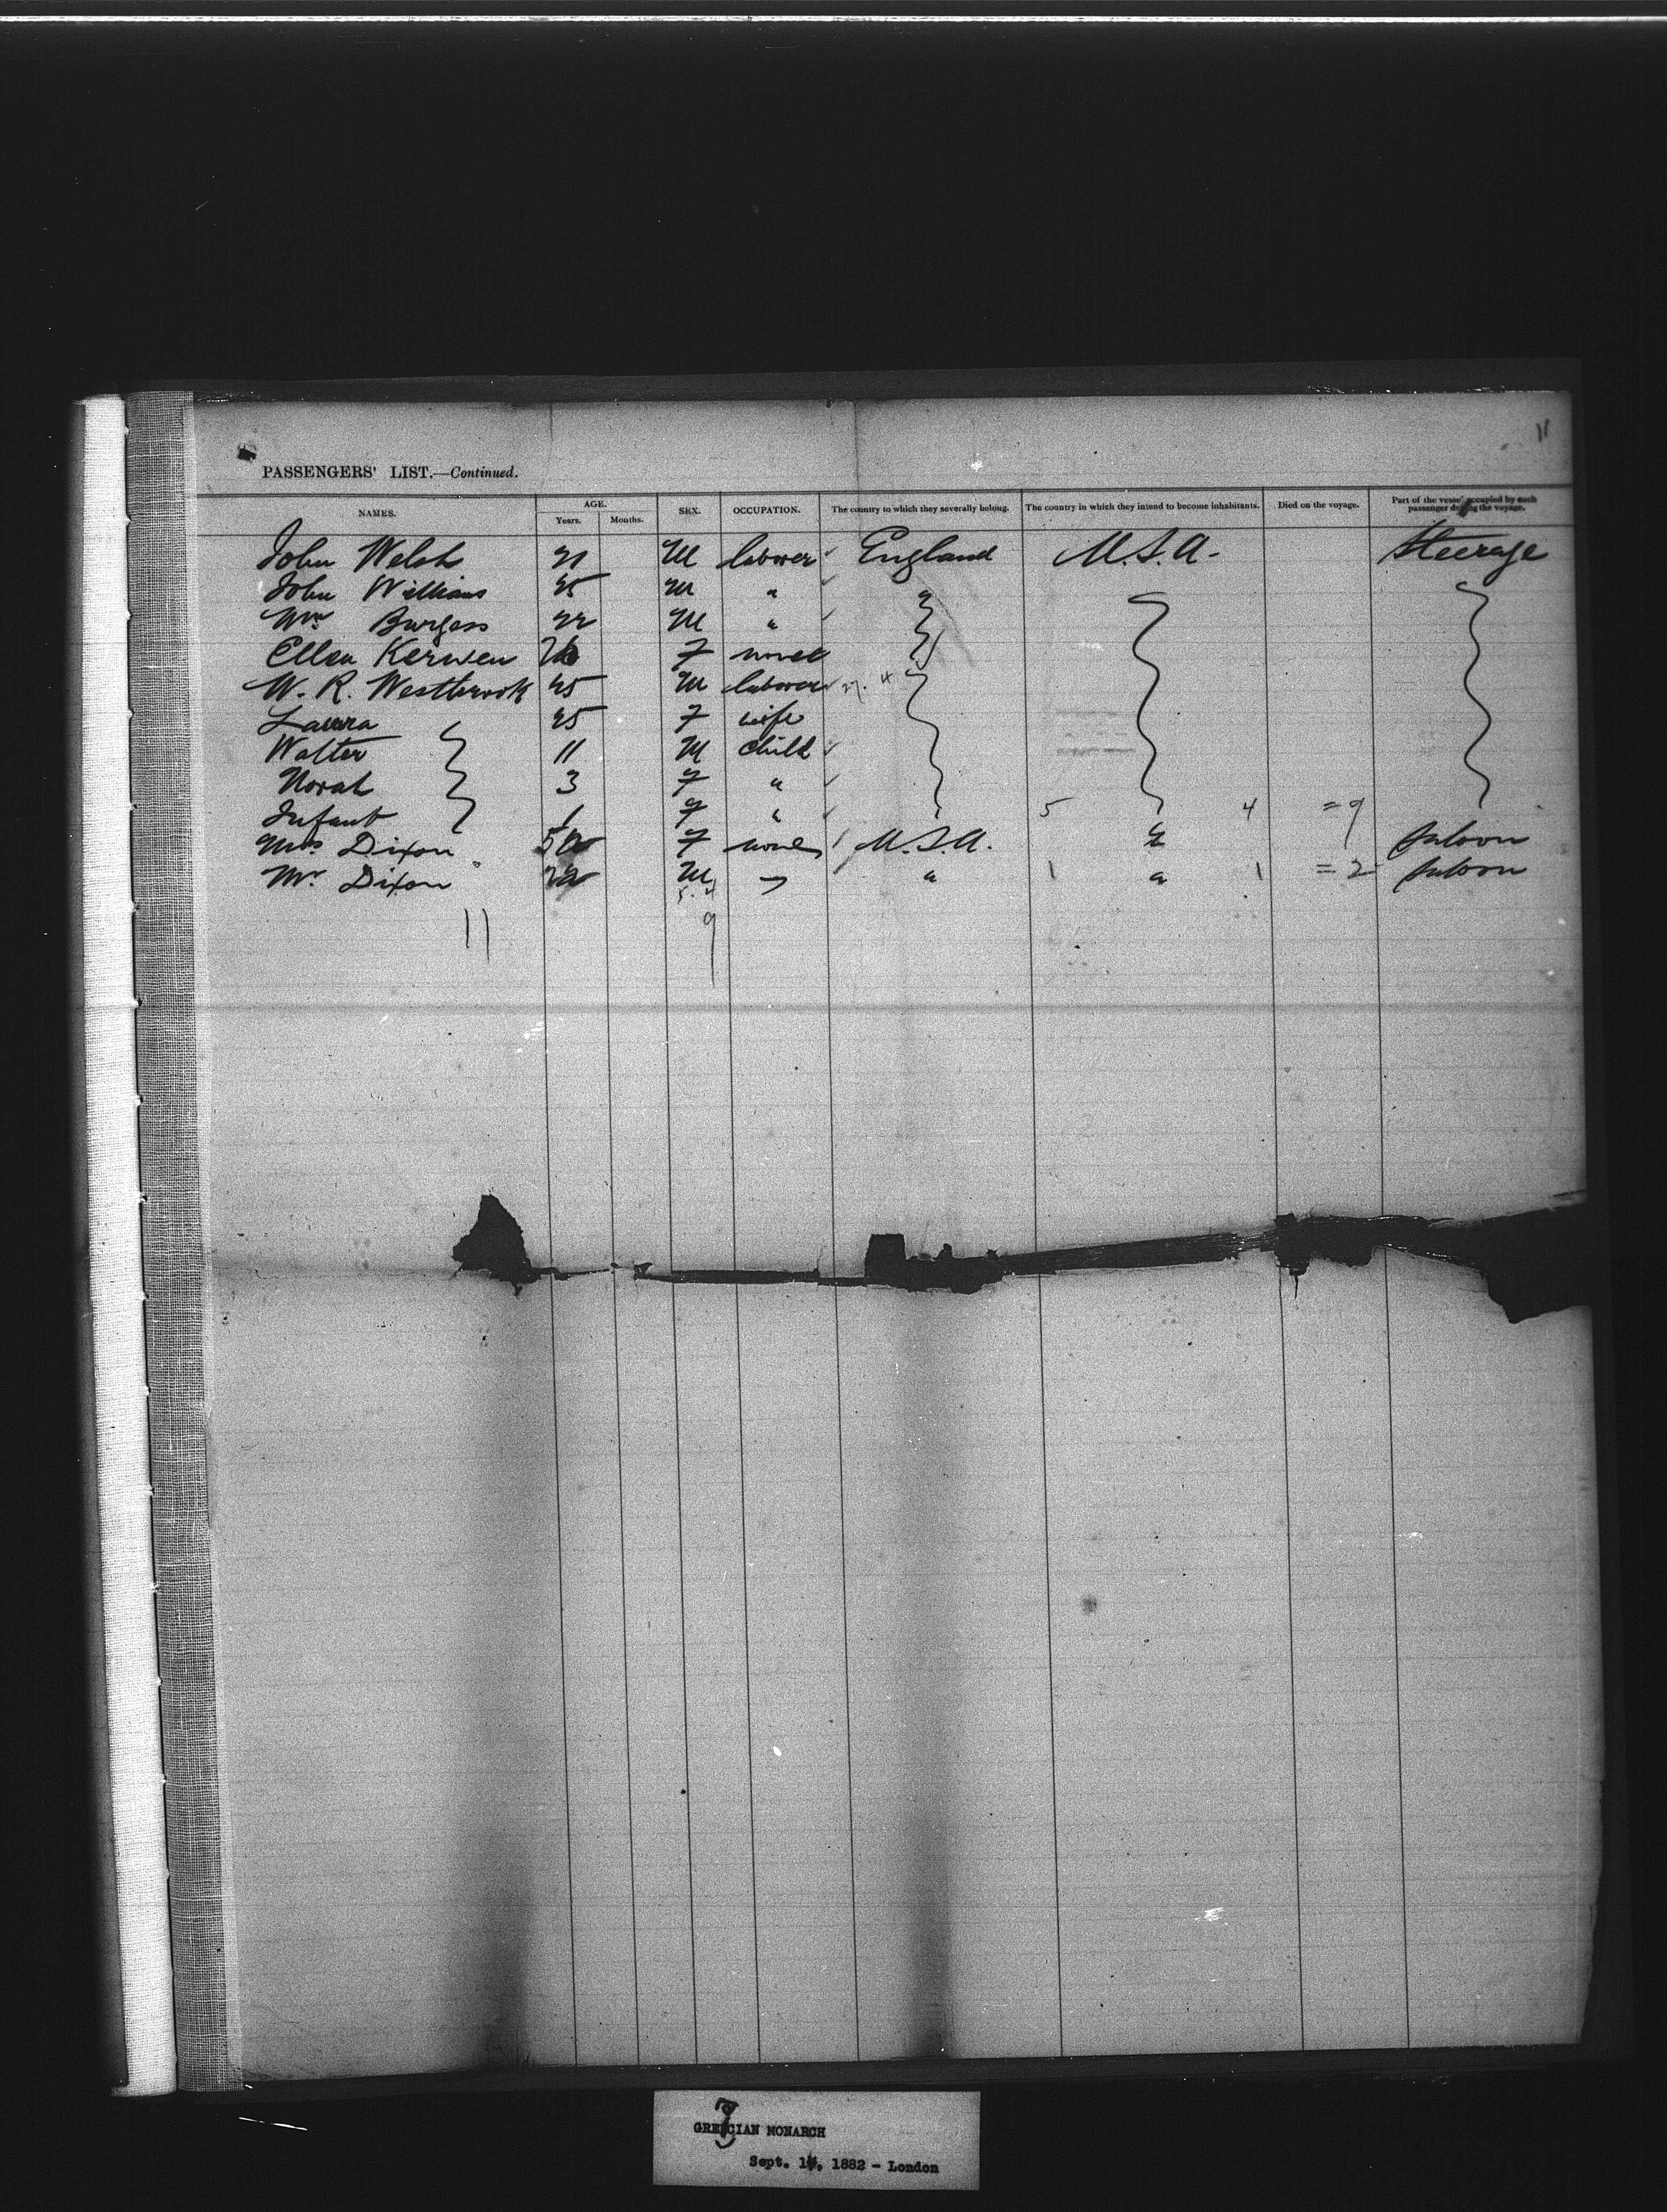 11
PASSENGERS' LIST.—Continued.
NAMES. AGE. Years. Months. SEX. OCCUPATION. The country to which they severally belong. The country in which they intend to become inhabitants. Died on the voyage. Part of the vessel occupied by each passenger during the voyage.
John Welsh 21 M laborer England U.S.A. Steerage
John Williams 25 M "
Wm Burgess 22 M "
Ellen Kerwen F none
W. R. Westbrook 25 M laborer
Laura 25 F wife
Walter 11 M child
Norah 3 F "
Infant 1 F " 5 4 =9
Mrs Dixon F none U.S.A. " saloon
Mr. Dixon M " " 1 1 =2 saloon
5.4
11 9
GRECIAN MONARCH
Sept. 1 , 1882 - London